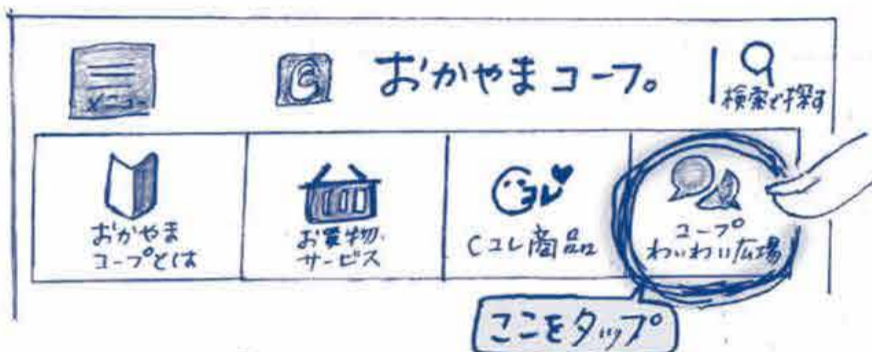 メニュー
おかやまコープ。
検索で探す
おかやま
コープとは
お買物・
サービス
コレ
Cコレ商品
コープ
わいわい広場
ここをタップ